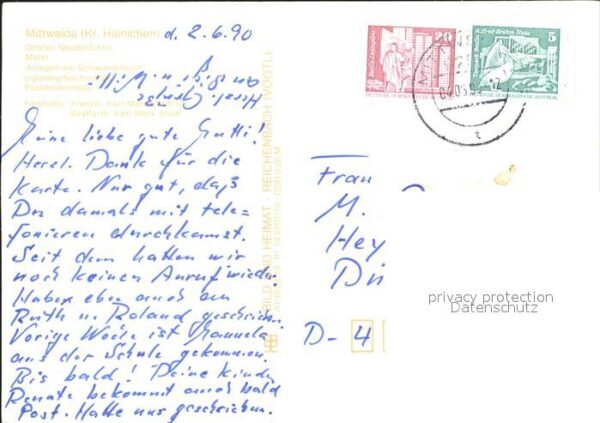 Mittweida (Kr. Hainichen) d. 2.6.90
Ortsteil Neudörfchen
Markt
Anlagen am Schwanenteich
Ingenieurhochschule
Postmeilensäule
Farbfotos: Frenzel, Karl-Marx-Stadt
Seyffarth, Karl-Marx-Stadt
Meine liebe gute Gutti!
Herzl. Dank für die
Karte. Nur gut, daß
Du damals mit tele-
fonieren durchkamst.
Seit dem hatten wir
noch keinen Anruf wieder.
Haben eben auch an
Ruth u. Roland geschrieben.
Vorige Woche ist Manuela
aus der Schule gekommen.
Bis bald! Deine Kinder
Renate bekommt auch bald
Post. Hatte uns geschrieben.
BILD UND HEIMAT · REICHENBACH (VOGTL)
20
5
Alfred-Brehm-Haus
Tierpark Berlin
Berlin-Leninplatz
t
Frau
M.
Hey
Din
D-4
privacy protection
Datenschutz